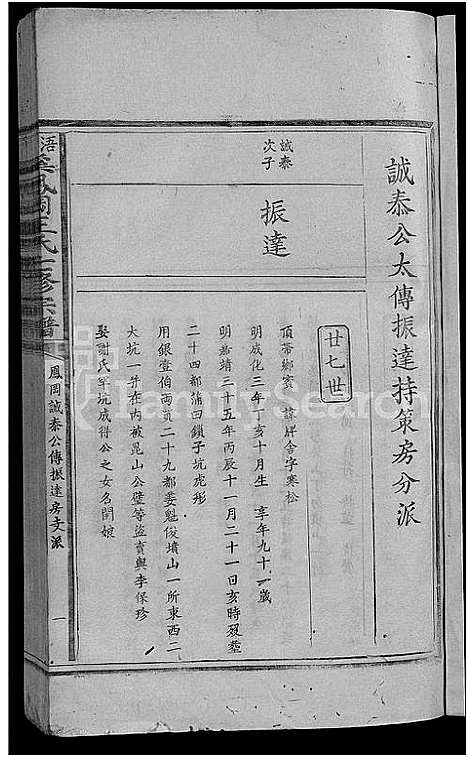 誠泰公太傳振達持策房分派
廿七世
誠泰
次子
振達
頂帶鄉賓 諱 舍字寒松
明成化三年丁亥十月生 享年九十一歲
明嘉靖三十五年丙辰十一月二十一日亥時歿葬
二十四都蒲田鎖子坑虎形
用銀壹伯兩買二十九都姜魁俊墳山一所東西二
大坑一并在內被昆山公璧等盜賣與李保珍
娶謝氏罕坑成得公之女名閏娘
浯溪鳳岡王氏 修宗譜
鳳岡誠泰公傳振達房支派
一
FamilySearch